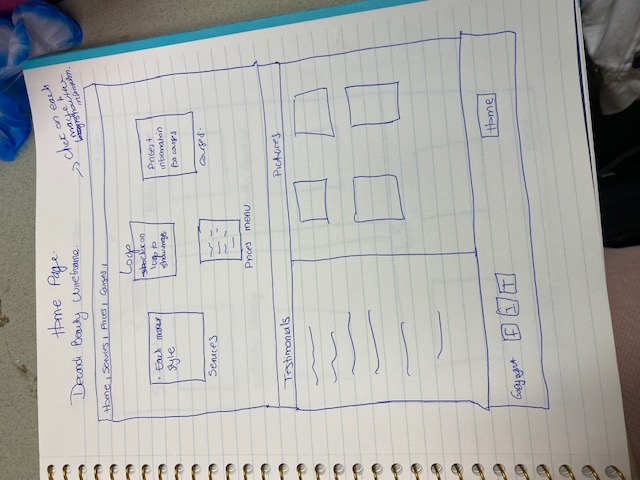 Home Page.
Decandi Beauty Wireframe.
click on each
image to
show the
information.
Home, Services, Prices, Courses,
Logo
click on
logo to
show image
• Each makeup
style
Services
Prices +
information
for courses
Courses.
Prices menu
Testimonials
Pictures
Copyright
F
I
T
Home